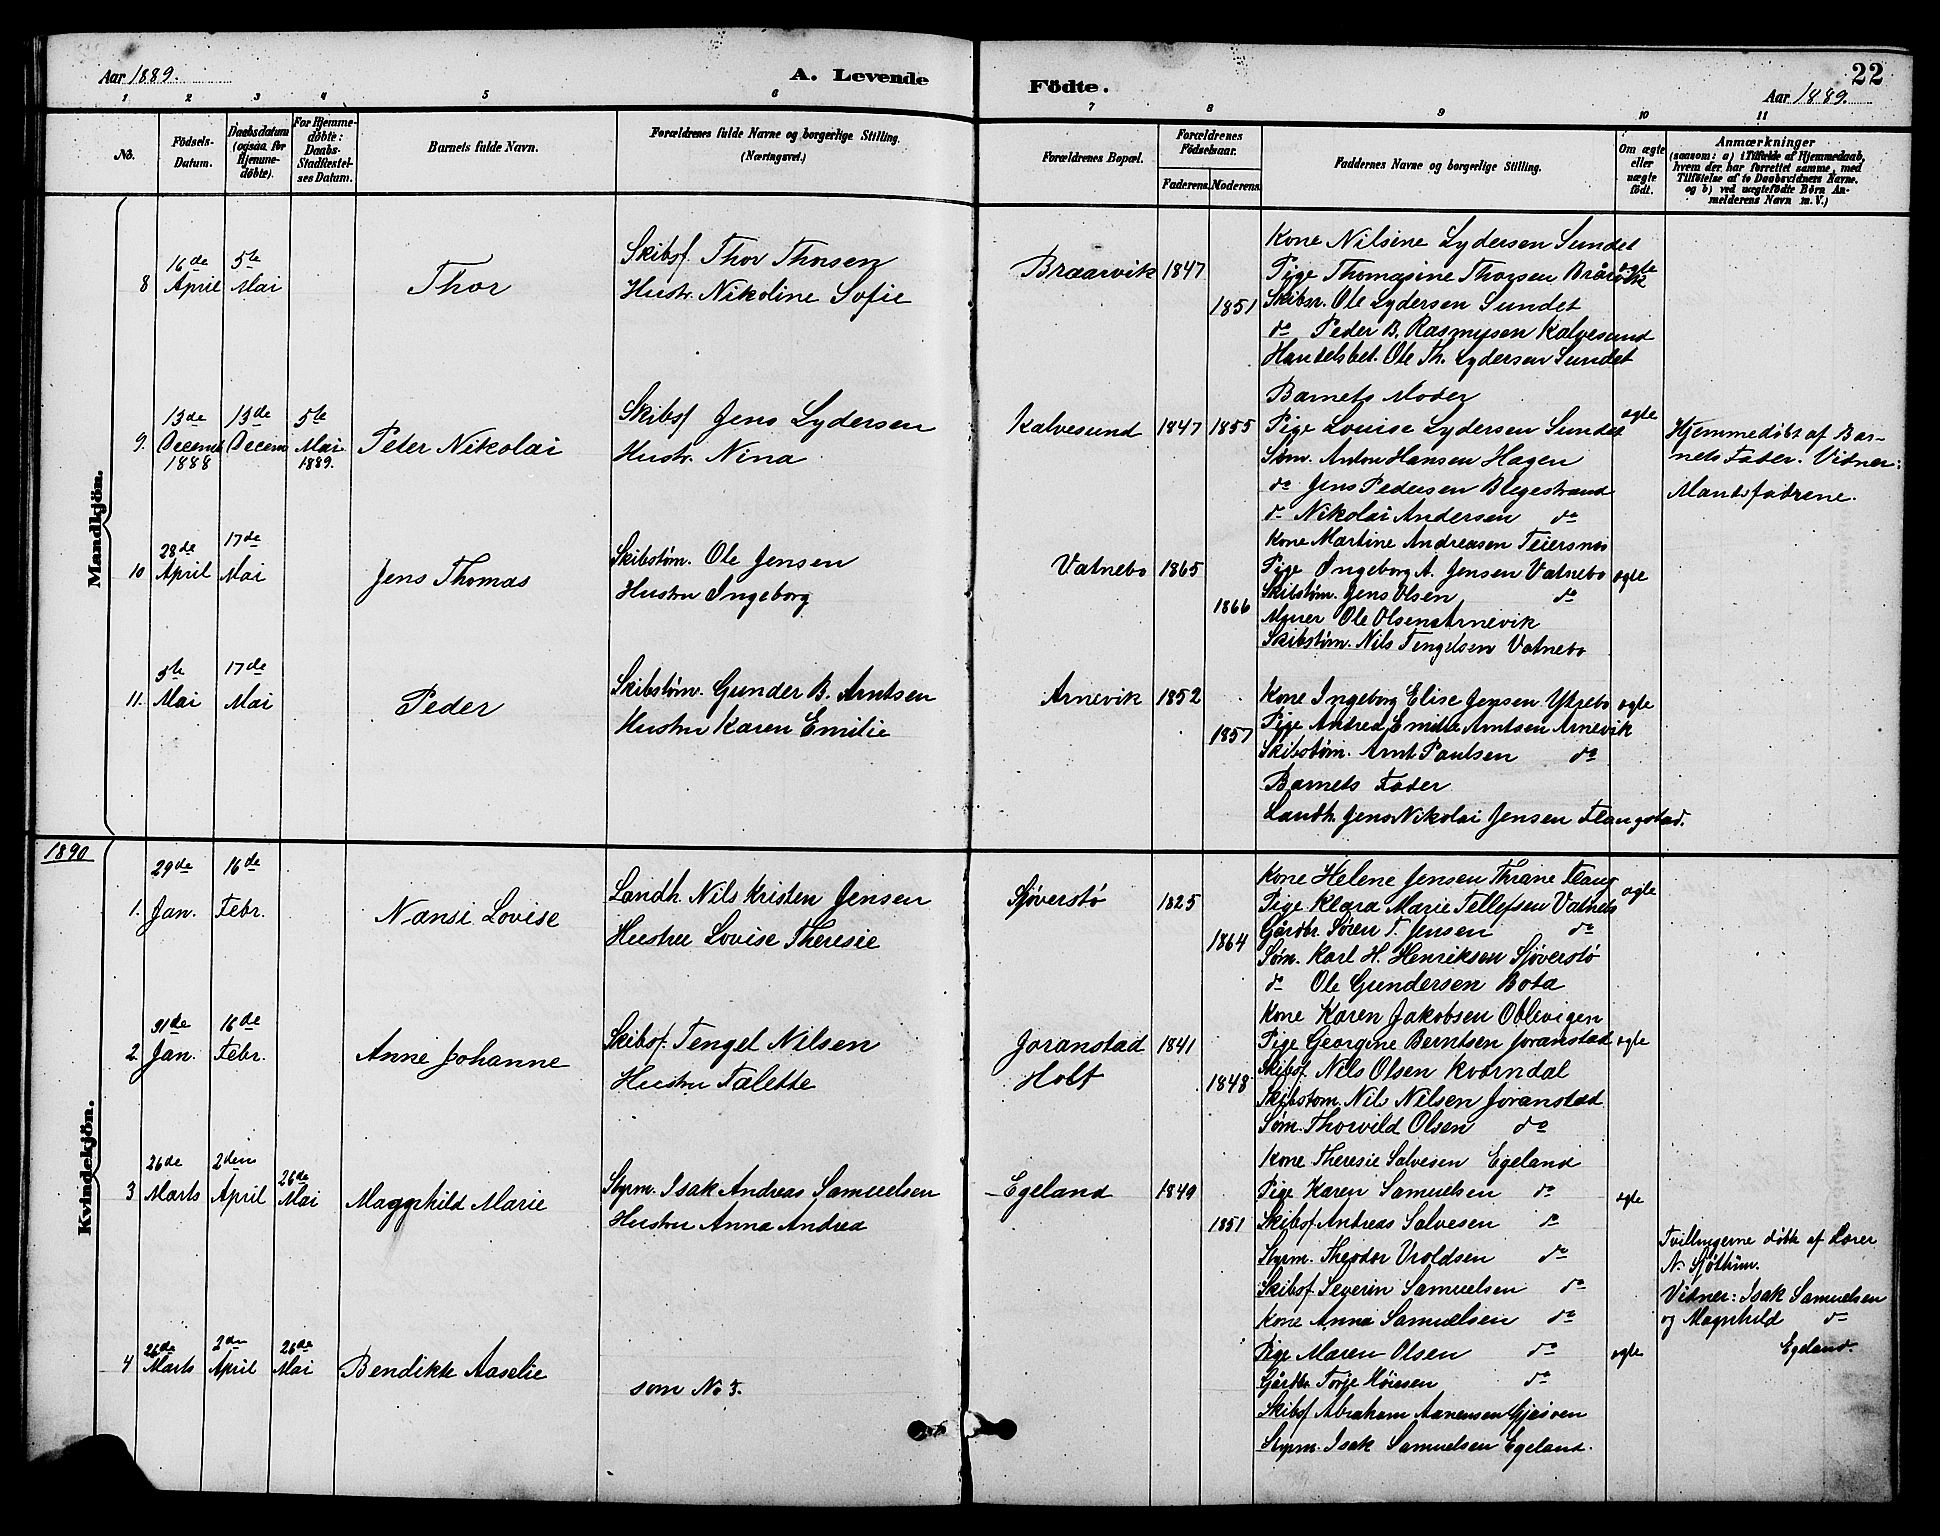 Aar 1889.
A. Levende Födte.
22
Aar 1889.
1 2 3 4 5 6 7 8 9 10 11
No.
Födsels-Datum.
Daabsdatum (ogsaa for Hjemme-döbte).
For Hjemme-döbte: Daabs-Stadfæstel-ses Datum.
Barnets fulde Navn.
Forældrenes fulde Navne og borgerlige Stilling. (Næringsvei.)
Forældrenes Bopæl.
Forældrenes Födselsaar.
Faderens. Moderens.
Faddernes Navne og borgerlige Stilling.
Om ægte eller uægte födt.
Anmærkninger
(saasom: a) i Tilfælde af Hjemmedaab,
hvem der har forrettet samme, med
Tilföielse af to Daabsvidners Navne,
og b) ved uægtefödte Börn An-
melderens Navn m. V.)
Mandkjön.
8
16de April
5te Mai
Thor
Skibsf. Thor Thorsen
Hustr. Nikoline Sofie
Braarvik
1847
1851
Kone Nilsine Lydersen Sundet
Pige Thomasine Thorsen Brårvik
Skibsr. Ole Lydersen Sundet
do Peder B. Rasmusen Kalvesund
Handelsbet. Ole Th. Lydersen Sundet
ægte
9.
13de Decemb 1888
13de Decem
5te Mai 1889.
Peder Nikolai
Skibsf Jens Lydersen
Hustr. Nina
Kalvesund
1847
1855
Barnets Moder
Pige Louise Lydersen Sundet
Søm. Anton Hansen Hagen
do Jens Pedersen Blegestrand
do Nikolai Andersen do
ægte
Hjemmedøbt af Bar-
nets Fader. Vidner:
Mandsfadrene.
10
28de April
17de Mai
Jens Thomas
Skibstøm. Ole Jensen
Hustru Ingeborg
Vatnebo
1865
1866
Kone Martine Andreasen Teiersnes
Pige Ingeborg A. Jensen Vatnebo
Skibstøm. Jens Olsen do
Murer Ole Olsen Arnevik
Skibstøm. Nils Tengelsen Vatnebo
ægte
11.
5te Mai
17de Mai
Peder
Skibstøm. Gunder B. Arntsen
Hustru Karen Emilie
Arnevik
1852
1857
Kone Ingeborg Elise Jensen Ytrebo
Pige Andrea Emilie Arntsen Arnevik
Skibstøm. Arnt Paulsen do
Barnets Fader
Landh. Jens Nikolai Jensen Flangstad.
ægte
1890
Kvindekjön.
1.
29de Jan.
16de Febr.
Nansi Lovise
Landh. Nils Kristen Jensen
Hustru Lovise Theresie
Sjøverstø
1825
1864
Kone Helene Jensen Thrane Flang
Pige Klara Marie Tellefsen Vatnebo
Gårdbr. Søren T. Jensen do
Søm. Karl H. Henriksen Sjøverstø
do Ole Gundersen Bota
ægte
2.
31de Jan.
16de Febr.
Anne Johanne
Skibsf. Tengel Nilsen
Hustru Talette
Joranstad
Holt
1841
1848
Kone Karen Jakobsen Oblevigen
Pige Georgine Berntsen Joranstad
Skibsf. Nils Olsen Kværndal
Skibstøm. Nils Nilsen Joranstad
Søm. Thorvild Olsen do
ægte
3
26de Marts
2den April
26de Mai
Magnhild Marie
Styrm. Isak Andreas Samuelsen
Hustru Anna Andrea
Egeland
1849
1851
Kone Theresie Salvesen Egeland
Pige Karen Samuelsen do
Skibsf Andreas Salvesen do
Styrm. Theodor Uroldsen do
Skibsf. Severin Samuelsen do
ægte
Tvillingerne døbt af Lærer
N. Sjøthun.
Vidner: Isak Samuelsen
og Magnhild do
Egeland.
4
26de Marts
2den April
26de Mai
Bendikte Aaselie
som No 3.
Kone Anna Samuelsen do
Pige Maren Olsen do
Gårdbr Torje Moiesen do
Skibsf Abraham Aanensen Gjesven
Styrm. Isak Samuelsen Egeland.
ægte